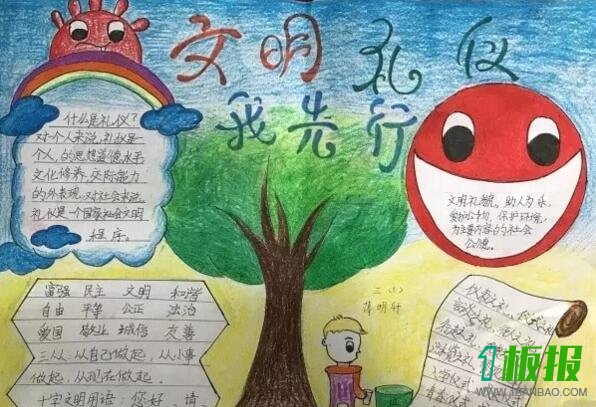 文明礼仪
我先行
什么是礼仪?
对个人来说,礼仪是
个人的思想道德水平
文化修养,交际能力
的外表现,对社会来说,
礼仪是一个国家社会文明
程序。
文明礼貌。助人为乐,
爱护公物,保护环境,
为主要内容的社会
公德。
富强 民主 文明 和谐
自由 平等 公正 法治
爱国 敬业 诚信 友善
三从,从自己做起,从小事
做起,从现在做起.
十字文明用语:您好 请
三(1)
仪表之礼
入学仪式
板报
WWW.1BANBAO.COM